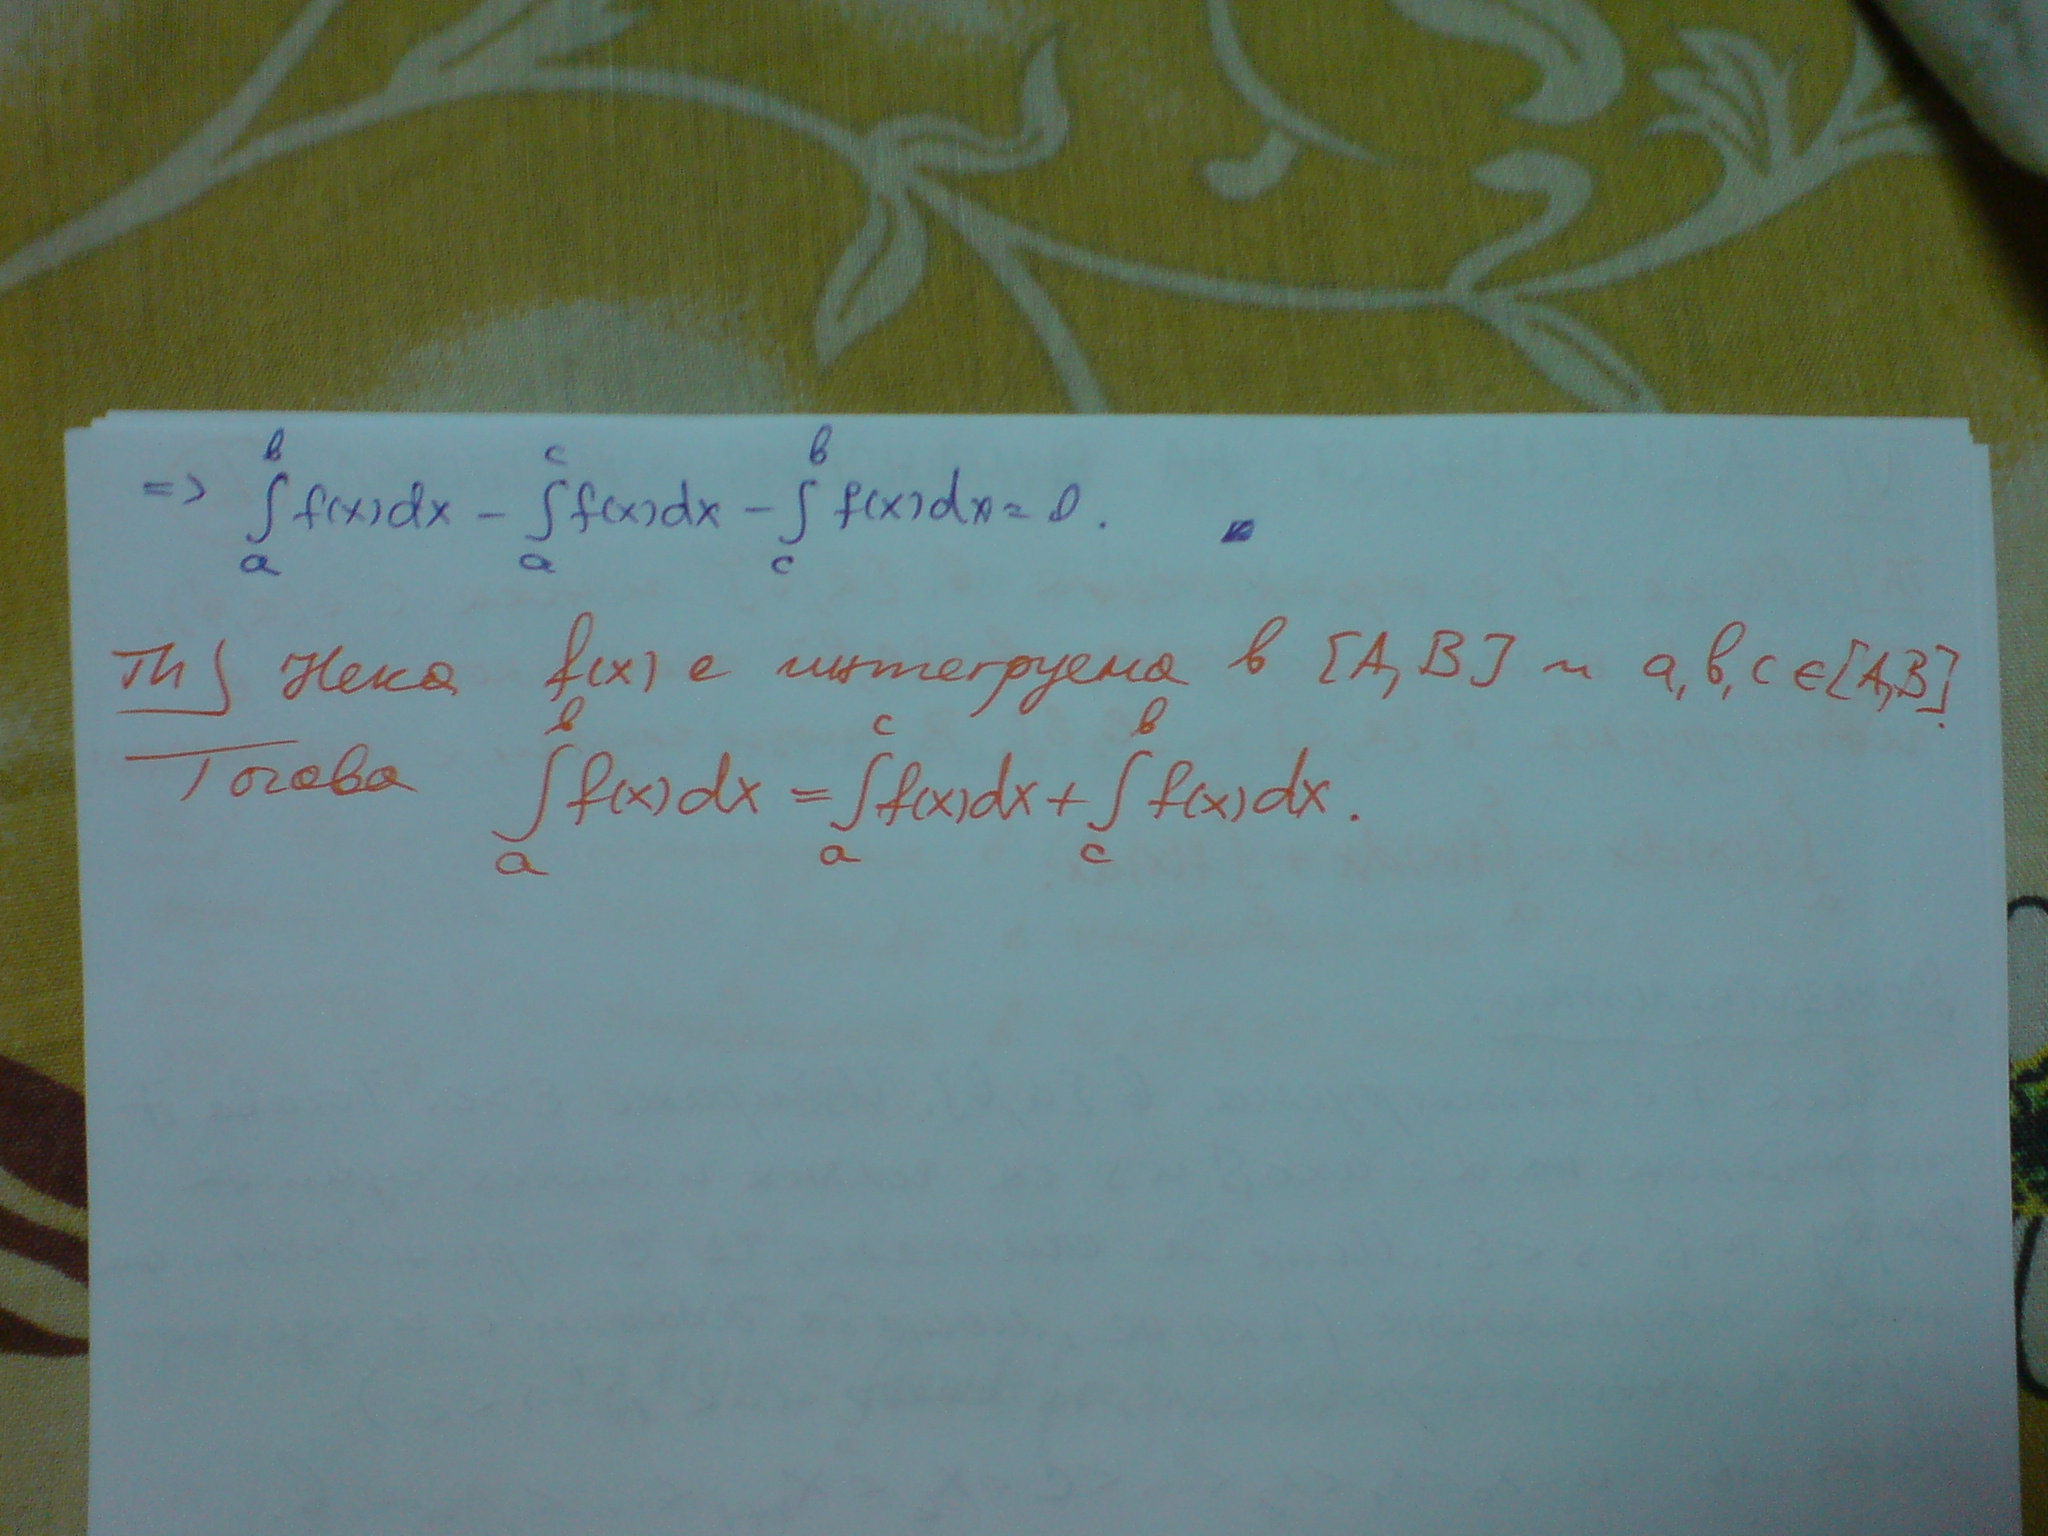 => ∫_a^b f(x)dx - ∫_a^c f(x)dx - ∫_c^b f(x)dx = 0.
Th] Нека f(x) е интегруема в [A,B] и a,b,c ∈ [A,B].
Тогава ∫_a^b f(x)dx = ∫_a^c f(x)dx + ∫_c^b f(x)dx.